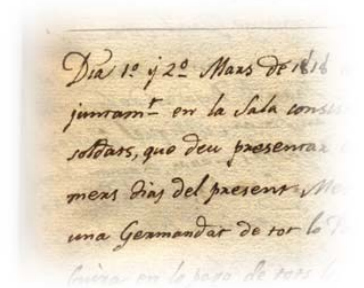 Dia 1º y 2º Mars de 1818
juntamt en la Sala consis
soldats, que deu presentar
mers dias del present Me
una Germandat de tot lo
en la paga de tots